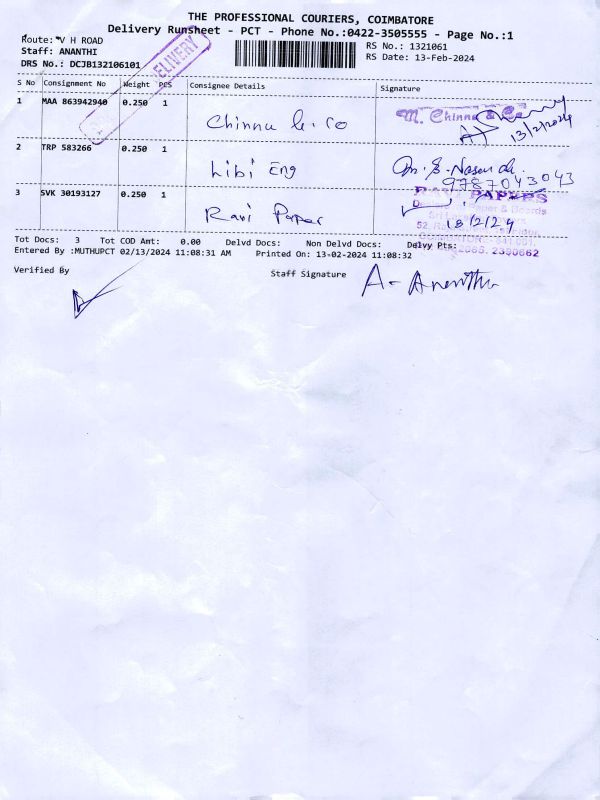 THE PROFESSIONAL COURIERS, COIMBATORE
Delivery Runsheet - PCT - Phone No.:0422-3505555 - Page No.:1
Route: V H ROAD
Staff: ANANTHI
DRS No.: DCJB132106101
RS No.: 1321061
RS Date: 13-Feb-2024
ELIVERY
S No Consignment No Weight PCS Consignee Details Signature
1 MAA 863942940 0.250 1 Chinnu & Co M. Chinna & Co
13/2/2024
2 TRP 583266 0.250 1 Libi Eng
9787043043
3 SVK 30193127 0.250 1 Ravi Paper RAVI PAPERS
Paper & Boards
13/2/24
Tot Docs: 3 Tot COD Amt: 0.00 Delvd Docs: Non Delvd Docs: Delvy Pts:
Entered By :MUTHUPCT 02/13/2024 11:08:31 AM Printed On: 13-02-2024 11:08:32
Verified By Staff Signature A. Ananthi